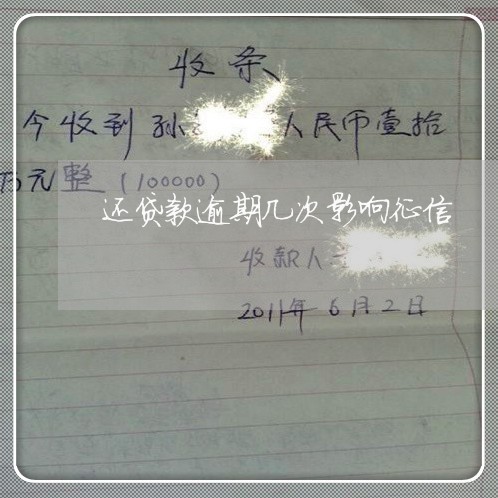 收条
今收到孙 人民币壹拾
万元整（100000）
还贷款逾期几次影响征信
收款人
2011年6月2日